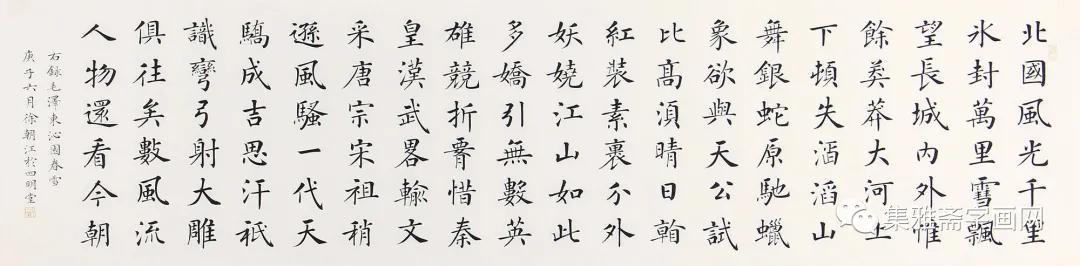 北國風光千里
氷封萬里雪飄
望長城內外惟
餘莽莽大河上
下頓失滔滔山
舞銀蛇原馳蠟
象欲與天公試
比高湏晴日翰
紅裝素裹分外
妖嬈江山如此
多嬌引無數英
雄競折腰惜秦
皇漢武畧輸文
采唐宗宋祖稍
遜風騷一代天
驕成吉思汗衹
識彎弓射大雕
俱往矣數風流
人物還看今朝
右錄毛澤東沁園春雪
庚子六月徐朝江於四明堂
集雅斋字画网